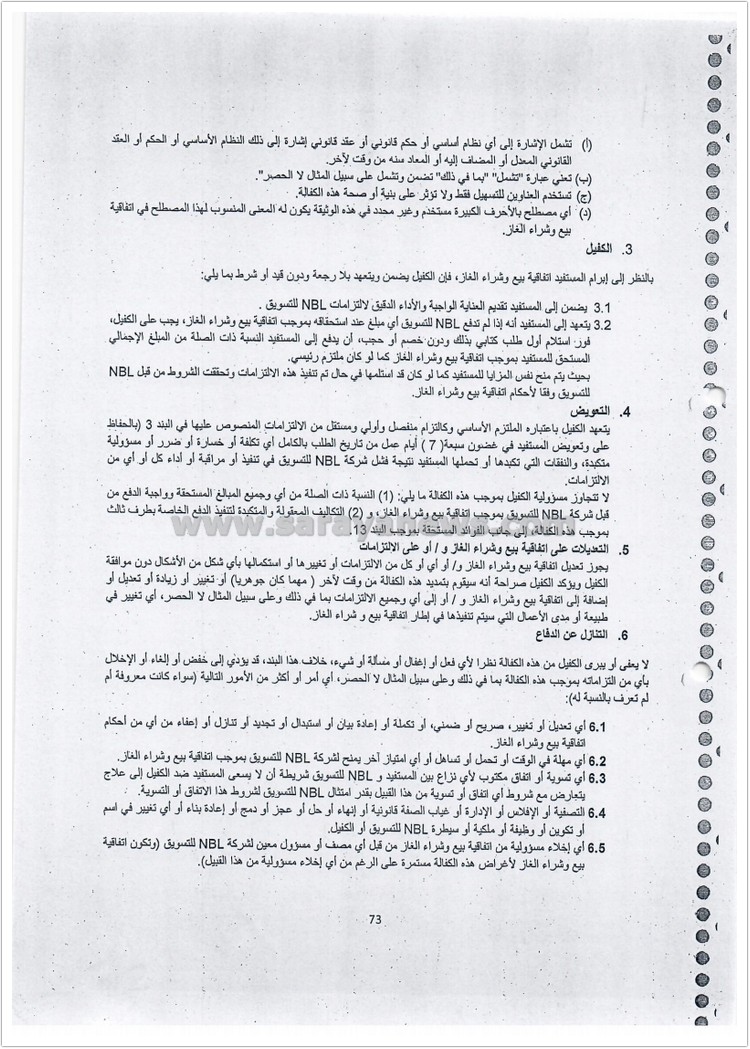 (أ) تشمل الإشارة إلى أي نظام أساسي أو حكم قانوني أو عقد قانوني إشارة إلى ذلك النظام الأساسي أو الحكم أو العقد
القانوني المعدل أو المضاف إليه أو المعاد سنه من وقت لآخر.
(ب) تعني عبارة "تشمل" "بما في ذلك" تضمن وتشمل على سبيل المثال لا الحصر".
(ج) تستخدم العناوين للتسهيل فقط ولا تؤثر على بنية أو صحة هذه الكفالة.
(د) أي مصطلح بالأحرف الكبيرة مستخدم وغير محدد في هذه الوثيقة يكون له المعنى المنسوب لهذا المصطلح في اتفاقية
بيع وشراء الغاز.
3. الكفيل
بالنظر إلى إبرام المستفيد اتفاقية بيع وشراء الغاز، فإن الكفيل يضمن ويتعهد بلا رجعة ودون قيد أو شرط بما يلي:
3.1 يضمن إلى المستفيد تقديم العناية الواجبة والأداء الدقيق لالتزامات NBL للتسويق .
3.2 يتعهد إلى المستفيد أنه إذا لم تدفع NBL للتسويق أي مبلغ عند استحقاقه بموجب اتفاقية بيع وشراء الغاز، يجب على الكفيل،
فور استلام أول طلب كتابي بذلك ودون خصم أو حجب، أن يدفع إلى المستفيد النسبة ذات الصلة من المبلغ الإجمالي
المستحق للمستفيد بموجب اتفاقية بيع وشراء الغاز كما لو كان ملتزم رئيسي.
بحيث يتم منح نفس المزايا للمستفيد كما لو كان قد استلمها في حال تم تنفيذ هذه الالتزامات وتحققت الشروط من قبل NBL
للتسويق وفقا لأحكام اتفاقية بيع وشراء الغاز.
4. التعويض
يتعهد الكفيل باعتباره الملتزم الأساسي وكالتزام منفصل وأولي ومستقل من الالتزامات المنصوص عليها في البند 3 (بالحفاظ
على وتعويض المستفيد في غضون سبعة( 7 ) أيام عمل من تاريخ الطلب بالكامل أي تكلفة أو خسارة أو ضرر أو مسؤولية
متكبدة، والنفقات التي تكبدها أو تحملها المستفيد نتيجة فشل شركة NBL للتسويق في تنفيذ أو مراقبة أو أداء كل أو أي من
الالتزامات.
لا تتجاوز مسؤولية الكفيل بموجب هذه الكفالة ما يلي: (1) النسبة ذات الصلة من أي وجميع المبالغ المستحقة وواجبة الدفع من
قبل شركة NBL للتسويق بموجب اتفاقية بيع وشراء الغاز، و (2) التكاليف المعقولة والمتكبدة لتنفيذ الدفع الخاصة بطرف ثالث
بموجب هذه الكفالة، إلى جانب الفوائد المستحقة بموجب البند 13.
5. التعديلات على اتفاقية بيع وشراء الغاز و / أو على الالتزامات
يجوز تعديل اتفاقية بيع وشراء الغاز و/ أو أي أو كل من الالتزامات أو تغييرها أو استكمالها بأي شكل من الأشكال دون موافقة
الكفيل ويؤكد الكفيل صراحة أنه سيقوم بتمديد هذه الكفالة من وقت لآخر ( مهما كان جوهريا) أو تغيير أو زيادة أو تعديل أو
إضافة إلى اتفاقية بيع وشراء الغاز و / أو إلى أي وجميع الالتزامات بما في ذلك وعلى سبيل المثال لا الحصر، أي تغيير في
طبيعة أو مدى الأعمال التي سيتم تنفيذها في إطار اتفاقية بيع و شراء الغاز.
6. التنازل عن الدفاع
لا يعفى أو يبرى الكفيل من هذه الكفالة نظرا لأي فعل أو إغفال أو مسألة أو شيء، خلاف هذا البند، قد يؤدي إلى خفض أو إلغاء أو الإخلال
بأي من التزاماته بموجب هذه الكفالة بما في ذلك وعلى سبيل المثال لا الحصر، أي أمر أو أكثر من الأمور التالية (سواء كانت معروفة أم
لم تعرف بالنسبة له):
6.1 أي تعديل أو تغيير، صريح أو ضمني، أو تكملة أو إعادة بيان أو استبدال أو تجديد أو تنازل أو إعفاء من أي من أحكام
اتفاقية بيع وشراء الغاز.
6.2 أي مهلة في الوقت أو تحمل أو تساهل أو أي امتياز آخر يمنح لشركة NBL للتسويق بموجب اتفاقية بيع وشراء الغاز.
6.3 أي تسوية أو اتفاق مكتوب لأي نزاع بين المستفيد و NBL للتسويق شريطة أن لا يسعى المستفيد ضد الكفيل إلى علاج
يتعارض مع شروط أي اتفاق أو تسوية من هذا القبيل بقدر امتثال NBL للتسويق لشروط هذا الاتفاق أو التسوية.
6.4 التصفية أو الإفلاس أو الإدارة أو غياب الصفة قانونية أو إنهاء أو حل أو عجز أو دمج أو إعادة بناء أو أي تغيير في اسم
أو تكوين أو وظيفة أو ملكية أو سيطرة NBL للتسويق أو الكفيل.
6.5 أي إخلاء مسؤولية من اتفاقية بيع وشراء الغاز من قبل أي مصف أو مسؤول معين لشركة NBL للتسويق (وتكون اتفاقية
بيع وشراء الغاز لأغراض هذه الكفالة مستمرة على الرغم من أي إخلاء مسؤولية من هذا القبيل).
73